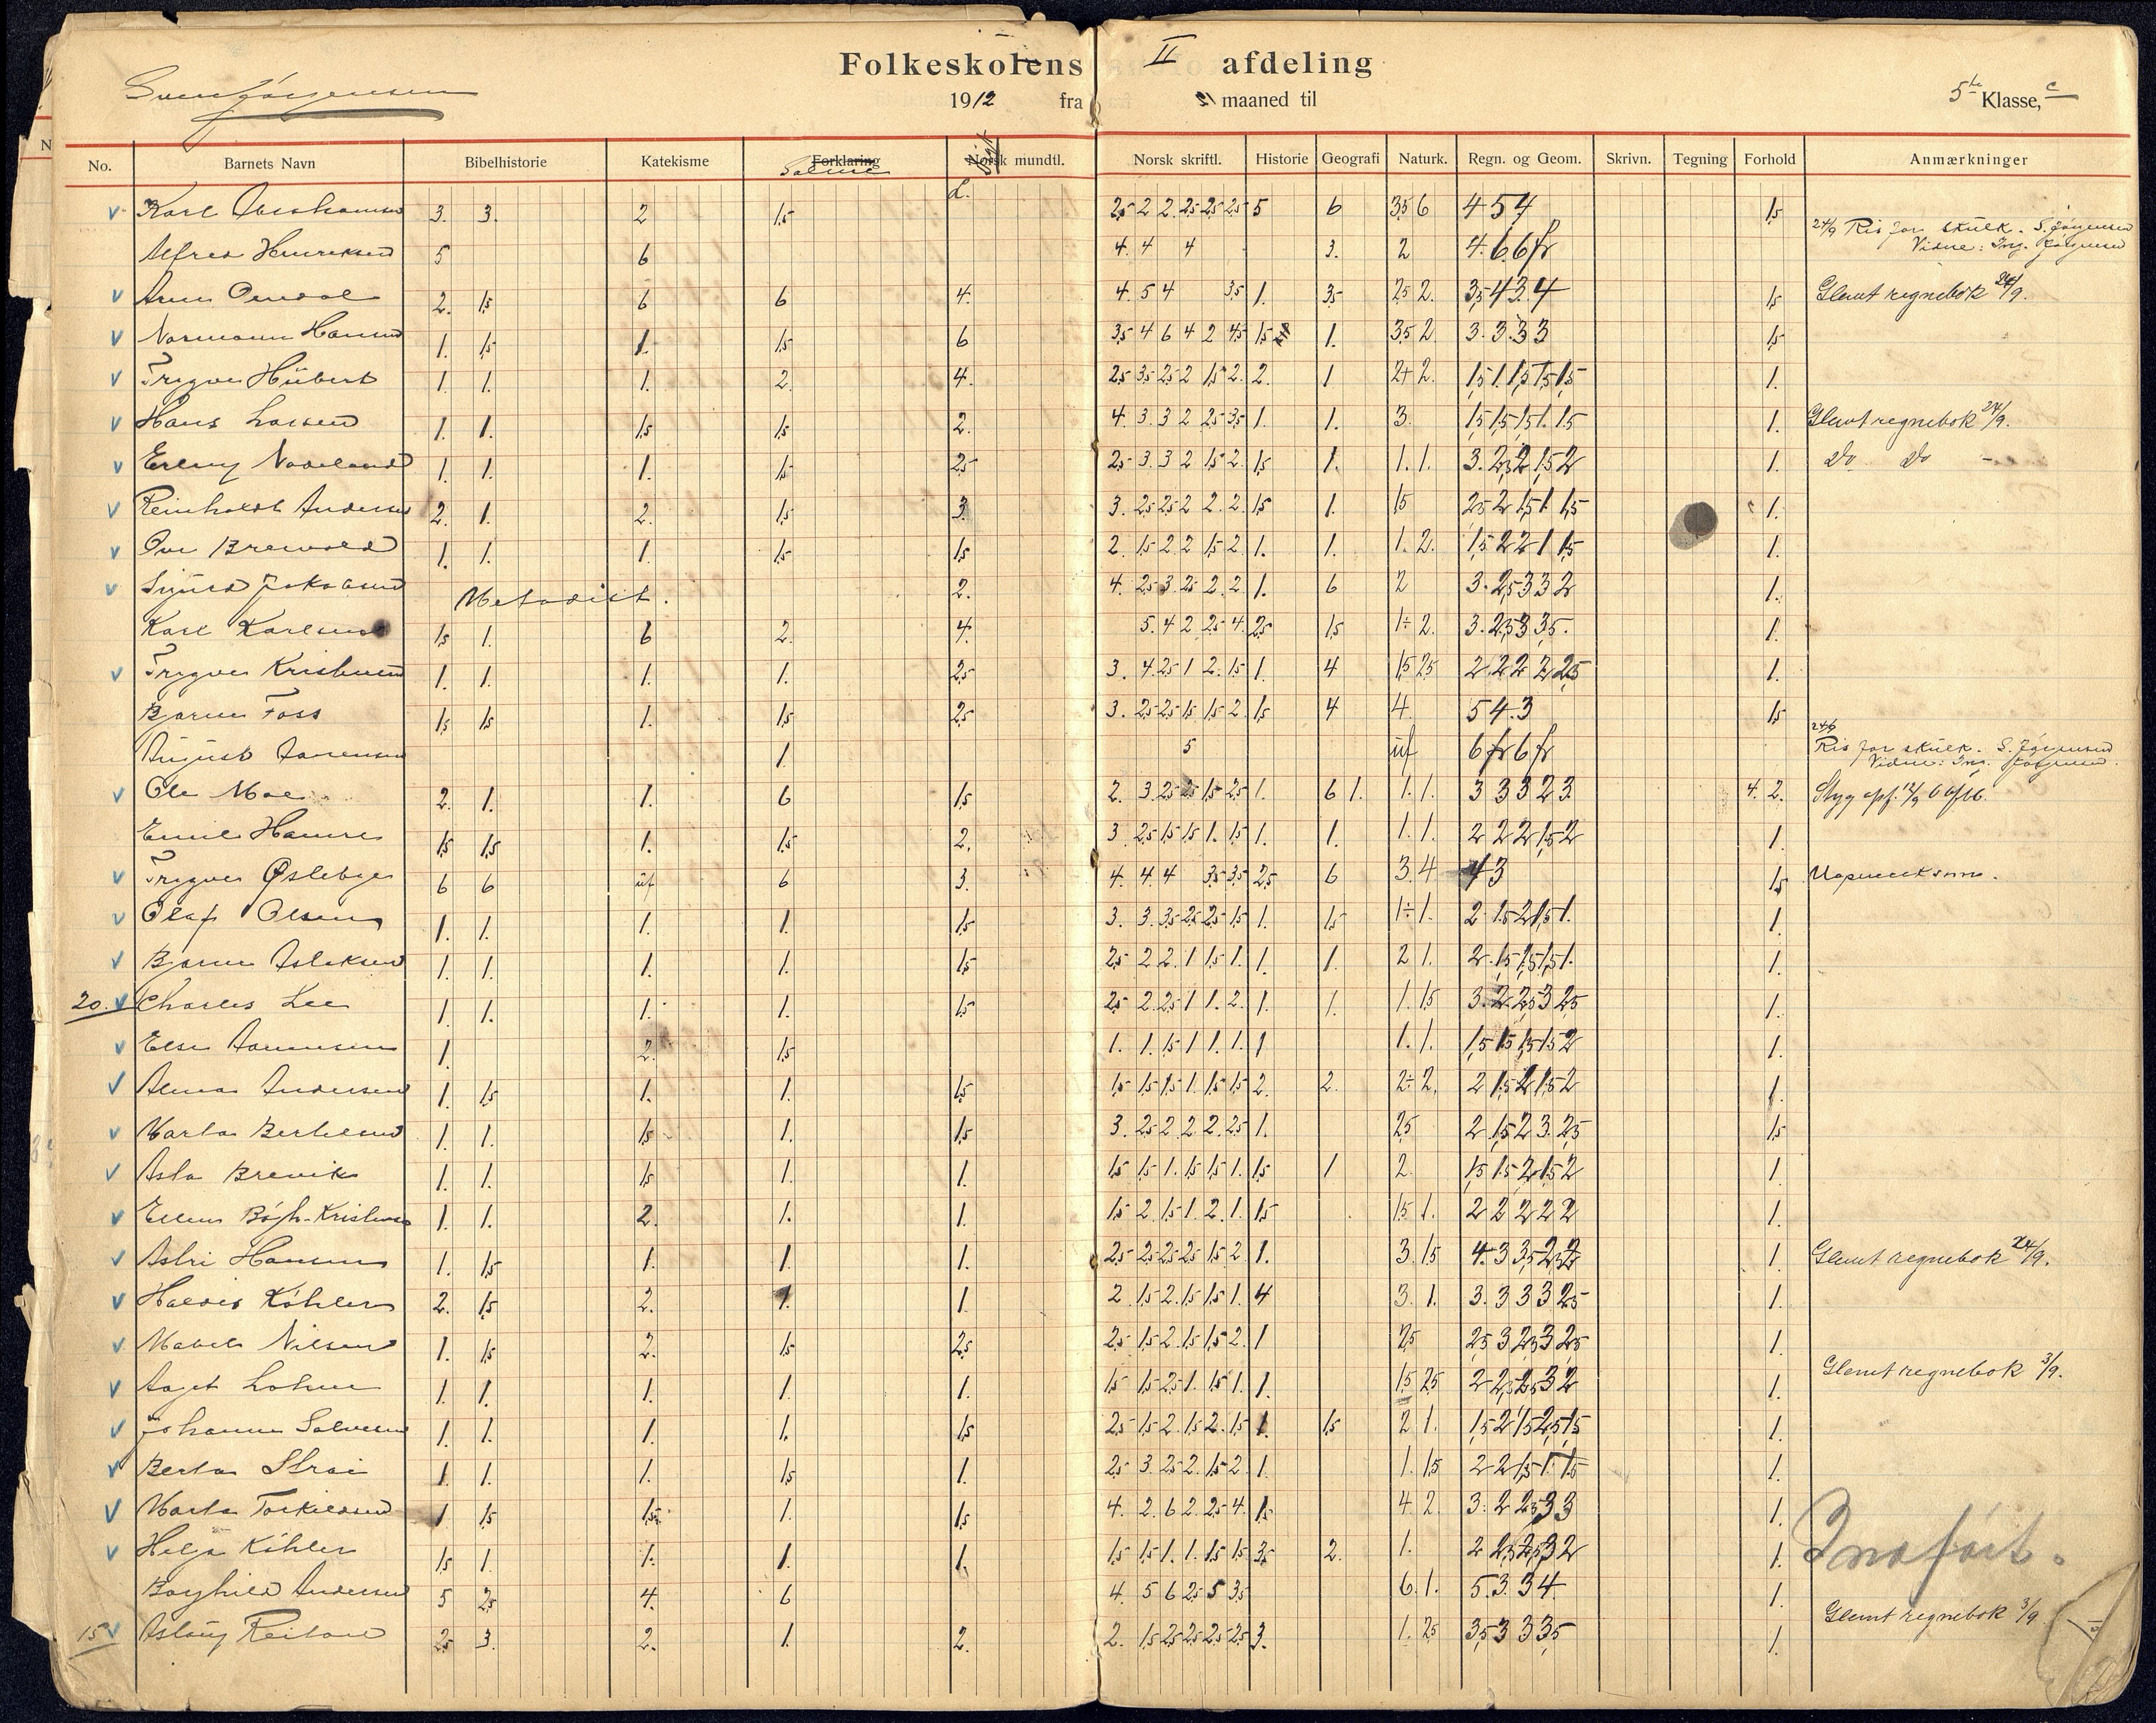 Folkeskolens II afdeling
Sven Jörgensen
1912 fra maaned til
5te Klasse, c
No. Barnets Navn Bibelhistorie Katekisme Forklaring Salme Norsk mundtl. Norsk skriftl. Historie Geografi Naturk. Regn. og Geom. Skrivn. Tegning Forhold Anmærkninger
v Karl Abrahamsen 3. 3. 2 1,5 2,5 2 2 2,5 2,5 2,5 5 6 3,5 6 4 5 4 1,5
24/9 Ris for skulk. S. Jörgensen
Vidne: Ing. Jörgensen
Alfred Henriksen 5 6 4. 4 4 3. 2 4. 6 6 fr
v Arne Omdal 2. 1,5 6 6 4. 4. 5 4 3,5 1. 3,5 2,5 2. 3,5 4 3 4 1,5 Glemt regnebok 24/9.
v Normann Hansen 1. 1,5 1. 1,5 6 3,5 4 6 4 2 4,5 1,5 1. 3,5 2 3. 3. 3 3 1,5
v Trygve Hübert 1. 1. 1. 2. 4. 2,5 3,5 2,5 2 1,5 2. 2. 1 2+ 2. 1,5 1. 1,5 1,5 1,5 1.
v Hans Larsen 1. 1. 1,5 1,5 2. 4. 3 3 2 2,5 3,5 1. 1. 3. 1,5 1,5 1,5 1. 1,5 1. Glemt regnebok 24/9.
v Erling Nodeland 1. 1. 1. 1,5 2,5 2,5 3. 3 2 1,5 2. 1,5 1. 1. 1. 3. 2,5 2 1,5 2 1. Do Do -
v Reinholdt Andersen 2. 1. 2. 1,5 3. 3. 2,5 2,5 2 2. 2. 1,5 1. 1,5 2,5 2 1,5 1. 1,5 1.
v Ove Brewold 1. 1. 1. 1,5 1,5 2. 1,5 2 2 1,5 2. 1. 1. 1. 2. 1,5 2 2 1 1,5 1.
v Sigurd Jakobsen Metodist. 2. 4. 2,5 3. 2,5 2. 2. 1. 6 2 3. 2,5 3 3 2 1.
Karl Karlsen 1,5 1. 6 2. 4. 5. 4 2 2,5 4. 2,5 1,5 1÷ 2. 3. 2,5 3 3,5. 1.
v Trygve Kristensen 1. 1. 1. 1. 2,5 3. 4. 2,5 1 2. 1,5 1. 4 1,5 2,5 2. 2 2 2 2,5 1.
Bjarne Foss 1,5 1,5 1. 1,5 2,5 3. 2,5 2,5 1,5 1,5 2. 1,5 4 4. 5 4. 3 1,5
August Aanensen 1. 5 uf 6 fr 6 fr
24/9
Ris for skulk. S. Jörgensen
Vidne: Ing. Jörgensen.
v Ole Moe 2. 1. 1. 6 1,5 2. 3. 2,5 2,5 1,5 2,5 1. 6 1. 1. 1. 3 3 3 2 3. 4. 2. Styg opf. 12/9
Emil Hamre 1,5 1,5 1. 1,5 2. 3 2,5 1,5 1,5 1. 1,5 1. 1. 1. 1. 2 2 2 1,5 2 1.
v Trygve Oslebye 6 6 uf 6 3. 4. 4. 4 3,5 3,5 2,5 6 3. 4 4 3 1,5 Uopmerksom.
v Olaf Olsen 1. 1. 1. 1. 1,5 3. 3. 3,5 2,5 2,5 1,5 1. 1,5 1÷ 1. 2. 1,5 2 1,5 1. 1.
v Bjarne Aslaksen 1. 1. 1. 1. 1,5 2,5 2 2. 1 1,5 1. 1. 1. 2 1. 2. 1,5 1,5 1,5 1. 1.
20. v Charles Lee 1. 1. 1. 1. 1,5 2,5 2. 2,5 1 1. 2. 1. 1. 1. 1,5 3. 2. 2,5 3 2,5 1.
v Else Aanensen 1. 2. 1,5 1. 1. 1,5 1 1. 1. 1 1. 1. 1,5 1,5 1,5 1,5 2 1.
v Alma Andersen 1. 1,5 1. 1. 1,5 1,5 1,5 1,5 1. 1,5 1,5 2. 2. 2÷ 2. 2 1,5 2 1,5 2 1.
v Marta Bertelsen 1. 1. 1,5 1. 1,5 3. 2,5 2. 2 2. 2,5 1. 2,5 2. 1,5 2 3. 2,5 1,5
v Asta Brevik 1. 1. 1,5 1. 1. 1,5 1,5 1. 1,5 1,5 1. 1,5 1 2. 1,5 1,5 2 1,5 2 1.
v Ellen Bögh-Kristensen 1. 1. 2. 1. 1. 1,5 2. 1,5 1. 2. 1. 1,5 1,5 1. 2 2 2 2 2 1.
v Astri Hansen 1. 1,5 1. 1. 1. 2,5 2,5 2,5 2,5 1,5 2 1. 3. 1,5 4. 3 3,5 2,5 2 1. Glemt regnebok 24/9.
v Haldis Köhler 2. 1,5 2. 1. 1. 2. 1,5 2. 1,5 1,5 1. 4 3. 1. 3. 3 3 3 2,5 1.
v Mabel Nilsen 1. 1,5 2. 1,5 2,5 2,5 1,5 2. 1,5 1,5 2. 1 2,5 2,5 3 2,5 3 2,5 1.
v Aagot Lohne 1. 1. 1. 1. 1. 1,5 1,5 2,5 1. 1,5 1. 1. 1,5 2,5 2 2,5 2,5 3 2 1. Glemt regnebok 3/9.
v Johanne Salvesen 1. 1. 1. 1. 1,5 2,5 1,5 2. 1,5 2. 1,5 1. 1,5 2 1. 1,5 2 1,5 2,5 1,5 1.
v Berta Strai 1. 1. 1. 1,5 1. 2,5 3. 2,5 2. 1,5 2. 1. 1. 1,5 2 2 1,5 1. 1,5 1.
v Marta Torkildsen 1 1,5 1,5 1. 1,5 4. 2. 6 2. 2,5 4. 1,5 4. 2. 3. 2 2,5 3 3 1.
v Helga Köhler 1,5 1. 1. 1. 1. 1,5 1,5 1. 1. 1,5 1,5 3,5 2. 1. 2 2,5 2,5 3 2 1. Indfört.
Borghild Andersen 5 2,5 4. 6 4. 5 6 2,5 5 3,5 6. 1. 5. 3. 3 4. 1.
15 v Aslaug Reitan 2,5 3. 2. 1. 2. 2. 1,5 2,5 2,5 2,5 2,5 3. 1. 2,5 3,5 3 3 3,5 1. Glemt regnebok 3/9